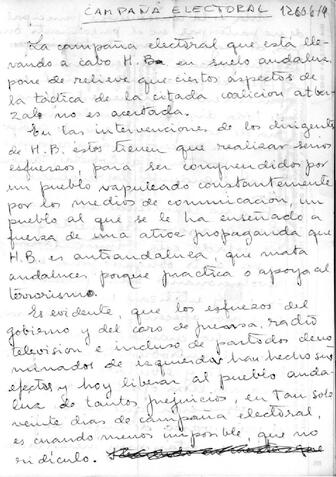 CAMPAÑA ELECTORAL
La campaña electoral que está lle-
vando a cabo H.B. en suelo andaluz
pone de relieve que ciertos aspectos de
la táctica de la citada coalicion abert-
zale no es acertada.
En las intervenciones de los dirigentes
de H.B. estos tienen que realizar serios
esfuerzos, para ser comprendidos por
un pueblo vapuleado constantemente
por los medios de comunicación, un
pueblo al que se le ha enseñado a
fuerza de una atroz propaganda que
H.B. es antiandaluza, que mata
andaluces porque practica o apoya al
terrorismo.
Es evidente, que los esfuerzos del
gobierno y del coro de prensa, radio
television e incluso de partidos deno-
minados de izquierdas han hecho sus
efectos y hoy liberar al pueblo anda-
luz de tantos prejuicios, en tan solo
veinte dias de campaña electoral,
es cuando menos imposible, que no
ridículo.